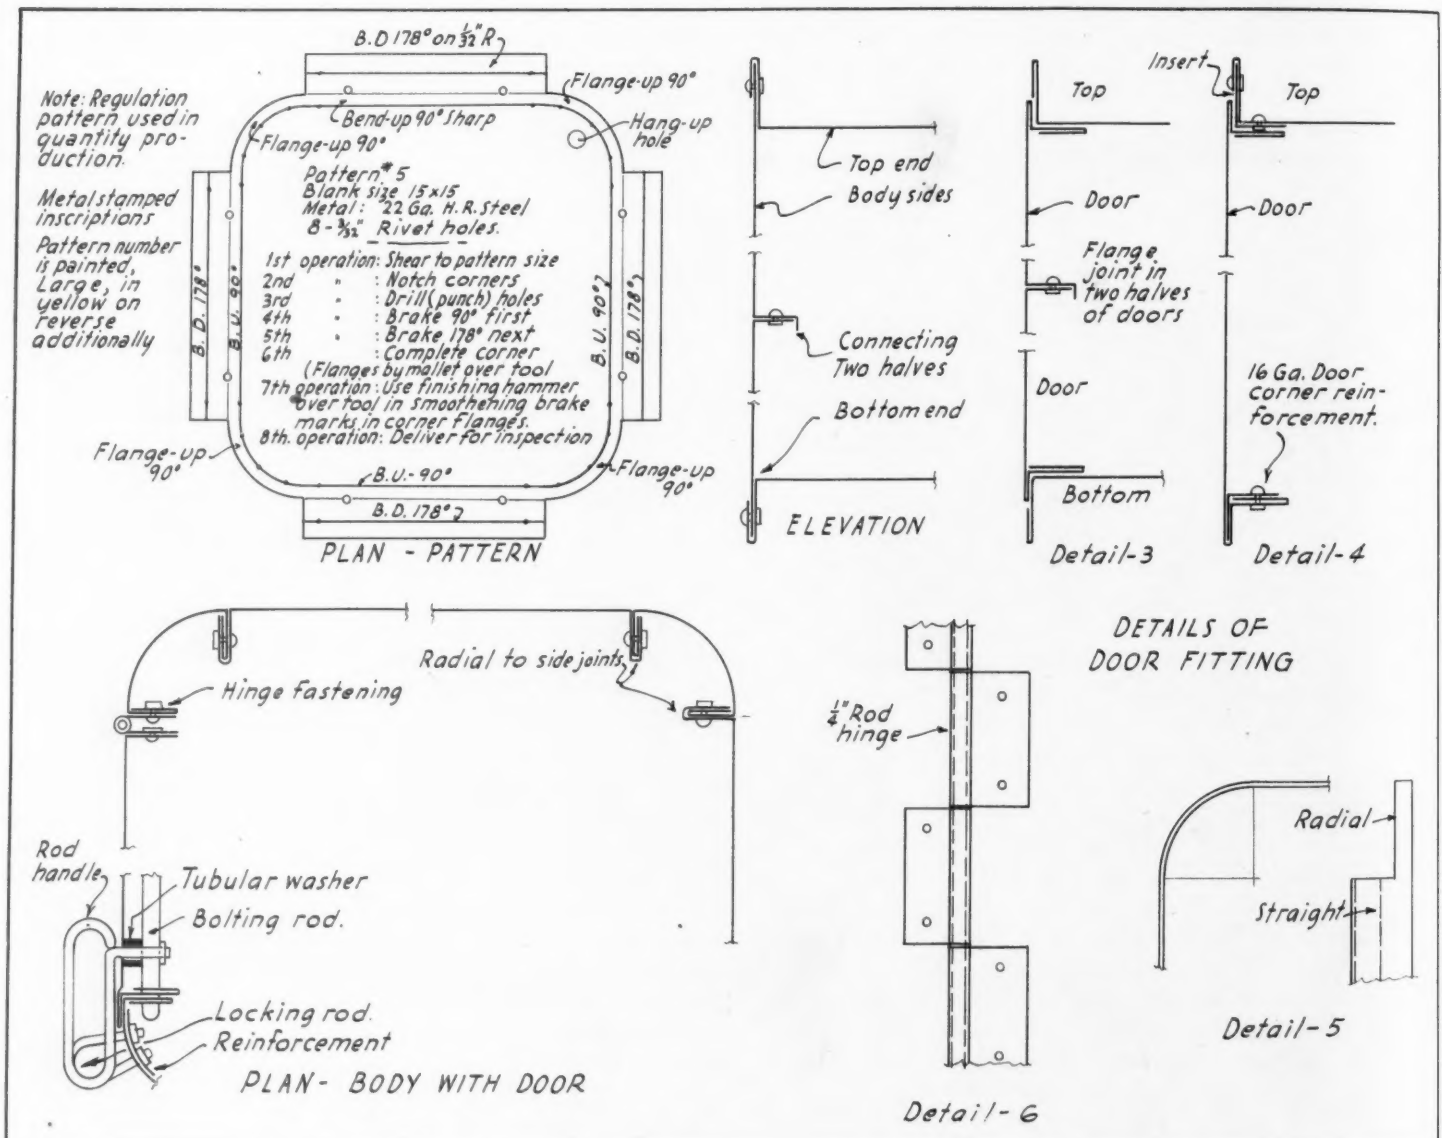 B.D 178° on 1/32" R
Note: Regulation
pattern used in
quantity pro-
duction.
Metal stamped
inscriptions
Pattern number
is painted,
Large, in
yellow on
reverse
additionally
Flange-up 90°
Bend-up 90° Sharp
Flange-up 90°
Hang-up
hole
Pattern #5
Blank size 15x15
Metal: 22 Ga. H.R. Steel
8 - 3/32" Rivet holes.
1st operation: Shear to pattern size
2nd " : Notch corners
3rd " : Drill (punch) holes
4th " : Brake 90° first
5th " : Brake 178° next
6th " : Complete corner
(Flanges by mallet over tool
7th operation: Use finishing hammer
over tool in smoothening brake
marks in corner flanges.
8th. operation: Deliver for inspection
B.D. 178°
B.U. 90°
B.U. 90°
B.D. 178°
Flange-up
90°
B.U.-90°
Flange-up
90°
B.D. 178°
PLAN - PATTERN
Top end
Body sides
Connecting
Two halves
Bottom end
ELEVATION
Top
Door
Flange
joint in
two halves
of doors
Door
Bottom
Detail-3
Insert
Top
Door
16 Ga. Door
corner rein-
forcement.
Detail-4
DETAILS OF
DOOR FITTING
Hinge fastening
Radial to side joints
Rod
handle
Tubular washer
Bolting rod.
Locking rod.
Reinforcement
PLAN - BODY WITH DOOR
1/4" Rod
hinge
Detail-6
Radial
Straight
Detail-5